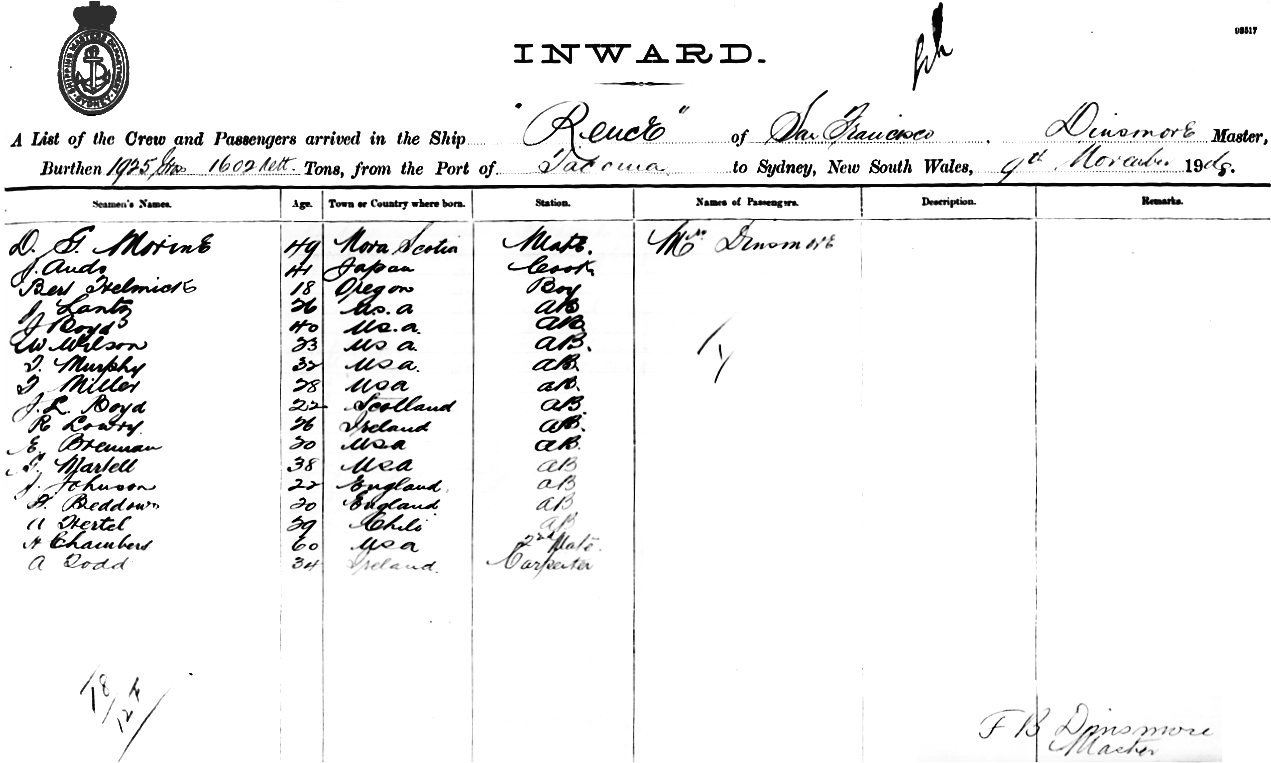 08517
INWARD.
A List of the Crew and Passengers arrived in the Ship "Reuce" of San Francisco. Dinsmore Master,
Burthen 1925 Gros 1602 Nett. Tons, from the Port of Tacoma to Sydney, New South Wales, 9th November 190
Seamen's Names. Age. Town or Country where born. Station. Names of Passengers. Description. Remarks.
D. G. Morine 49 Nova Scotia Mate. Mrs Dinsmore
J. Ando 41 Japan Cook
Bert Helmick 18 Oregon Boy
J Lantz 26 U.S.A AB
J Boyd 40 U.S.A. AB
W Wilson 23 U S A. AB.
T. Murphy 32 U.S.A. AB.
T Miller 28 U S A AB.
J. L. Boyd 22 Scotland AB
R Lowry. 26 Ireland AB.
E. Brennan 20 U.S.A AB.
Martell 38 U S A AB
J. Johnson 22 England. AB
H. Beddows 20 England AB
Hertel 29 Chili AB
H Chambers 60 U S A 2nd Mate.
A Todd 34 Ireland. Carpenter
18
12 F
F B Dinsmore
Master